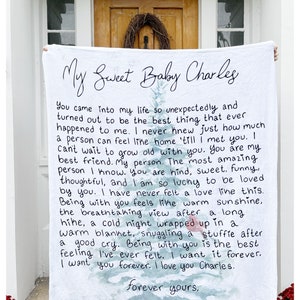 My Sweet Baby Charles
You came into my life so unexpectedly and
turned out to be the best thing that ever
happened to me. I never knew just how much
a person can feel like home 'till I met you. I
can't wait to grow old with you. You are my
best friend. My person. The most amazing
person I know. You are kind, sweet, funny,
thoughtful, and I am so lucky to be loved
by you. I have never felt a love like this.
Being with you feels like warm sunshine,
the breathtaking view after a long
hike, a cold night wrapped up in a
warm blanket, snuggling a stuffie after
a good cry. Being with you is the best
feeling I've ever felt. I want it forever.
I want you forever. I love you Charles.
forever yours,